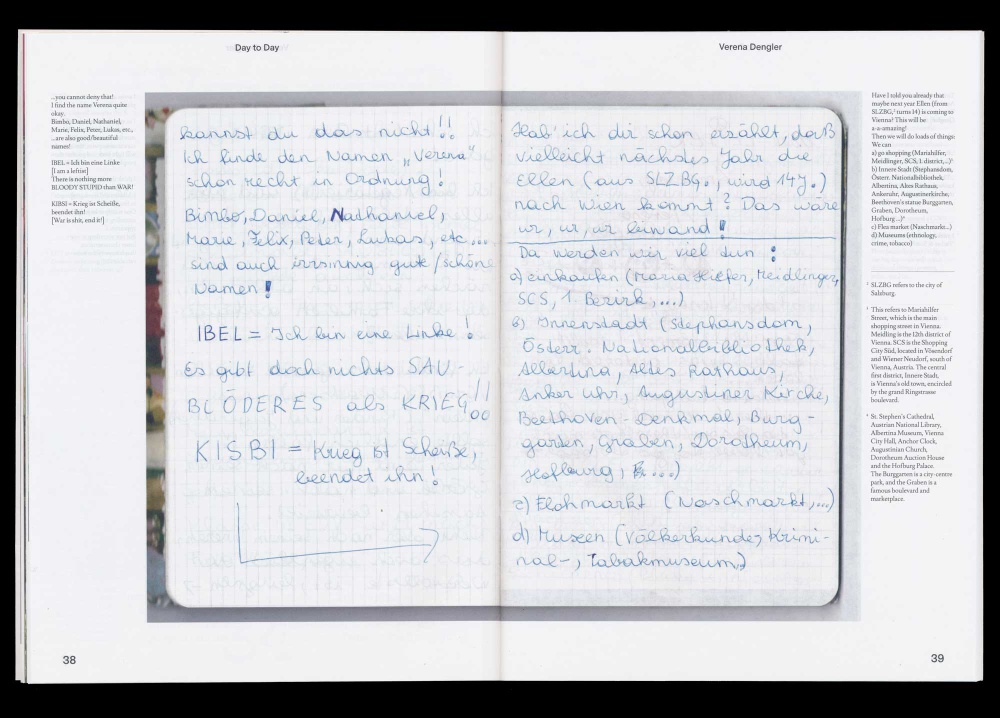 Day to Day
...you cannot deny that!
I find the name Verena quite
okay.
Bimbo, Daniel, Nathaniel,
Marie, Felix, Peter, Lukas, etc.,
...are also good/beautiful
names!
IBEL = Ich bin eine Linke
[I am a leftist]
There is nothing more
BLOODY STUPID than WAR!
KIBSI = Krieg ist Scheiße,
beendet ihn!
[War is shit, end it!]
kannst du das nicht!!
Ich finde den Namen „Verena“
schon recht in Ordnung!
Bimbo, Daniel, Nathaniel,
Marie, Felix, Peter, Lukas, etc...
sind auch irrsinnig gute/schöne
Namen!
IBEL = Ich bin eine Linke!
Es gibt doch nichts SAU-
BLÖDERES als KRIEG!!
KISBI = Krieg ist Scheiße,
beendet ihn!
38
Verena Dengler
Hab' ich dir schon erzählt, daß
vielleicht nächstes Jahr die
Ellen (aus SLZBG., wird 14J.)
nach Wien kommt? Das wäre
ur, ur, ur leiwand!
Da werden wir viel tun:
a) einkaufen (Maria Hilfer, Meidlinger,
SCS, 1. Bezirk,...)
b) Innenstadt (Stephansdom,
Österr. Nationalbibliothek,
Albertina, Altes Rathaus,
Anker Uhr, Augustiner Kirche,
Beethoven-Denkmal, Burg-
garten, Graben, Dorotheum,
Hofburg, ...)
c) Flohmarkt (Naschmarkt,...)
d) Museen (Völkerkunde, Krimi-
nal-, Tabakmuseum)
Have I told you already that
maybe next year Ellen (from
SLZBG,² turns 14) is coming to
Vienna? This will be
a-a-amazing!
Then we will do loads of things:
We can
a) go shopping (Mariahilfer,
Meidlinger, SCS, 1. district,...)³
b) Innere Stadt (Stephansdom,
Österr. Nationalbibliothek,
Albertina, Altes Rathaus,
Ankeruhr, Augustinerkirche,
Beethoven's statue Burggarten,
Graben, Dorotheum,
Hofburg ...)⁴
c) Flea market (Naschmarkt...)
d) Museums (ethnology,
crime, tobacco)
² SLZBG refers to the city of
Salzburg.
³ This refers to Mariahilfer
Street, which is the main
shopping street in Vienna.
Meidling is the 12th district of
Vienna. SCS is the Shopping
City Süd, located in Vösendorf
and Wiener Neudorf, south of
Vienna, Austria. The central
first district, Innere Stadt,
is Vienna's old town, encircled
by the grand Ringstrasse
boulevard.
⁴ St. Stephen's Cathedral,
Austrian National Library,
Albertina Museum, Vienna
City Hall, Anchor Clock,
Augustinian Church,
Dorotheum Auction House
and the Hofburg Palace.
The Burggarten is a city-centre
park, and the Graben is a
famous boulevard and
marketplace.
39